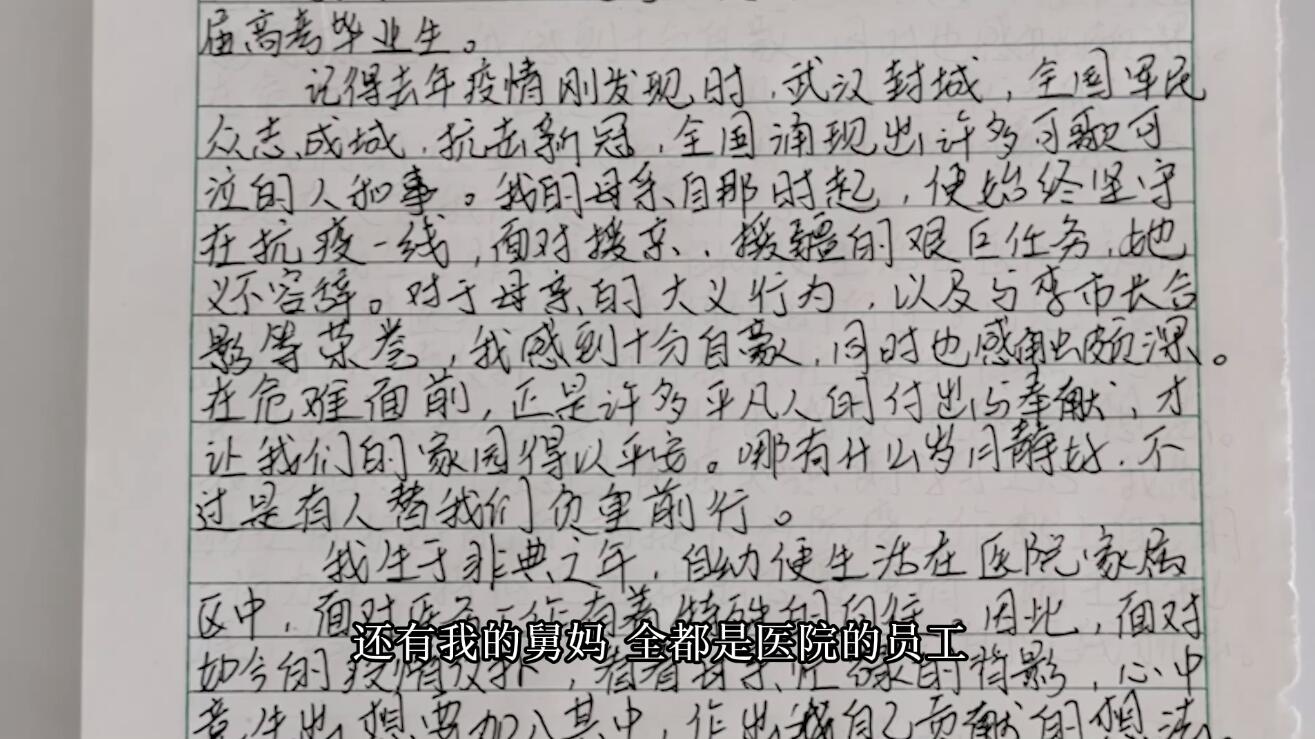 届高考毕业生。
记得去年疫情刚发现时，武汉封城，全国军民
众志成城，抗击新冠，全国涌现出许多可歌可
泣的人和事。我的母亲自那时起，便始终坚守
在抗疫一线，面对援京、援疆的艰巨任务，她
义不容辞。对于母亲的大义行为，以及与李市长合
影等荣誉，我感到十分自豪，同时也感触颇深。
在危难面前，正是许多平凡人的付出与奉献，才
让我们的家园得以平安。哪有什么岁月静好，不
过是有人替我们负重前行。
我生于非典之年，自幼便生活在医院家属
区中，面对医务工作有着特殊的向往。因此，面对
还有我的舅妈 全都是医院的员工
如今的疫情，看着母亲忙碌的背影，心中
意生出想要加入其中，作出我自己贡献的想法。